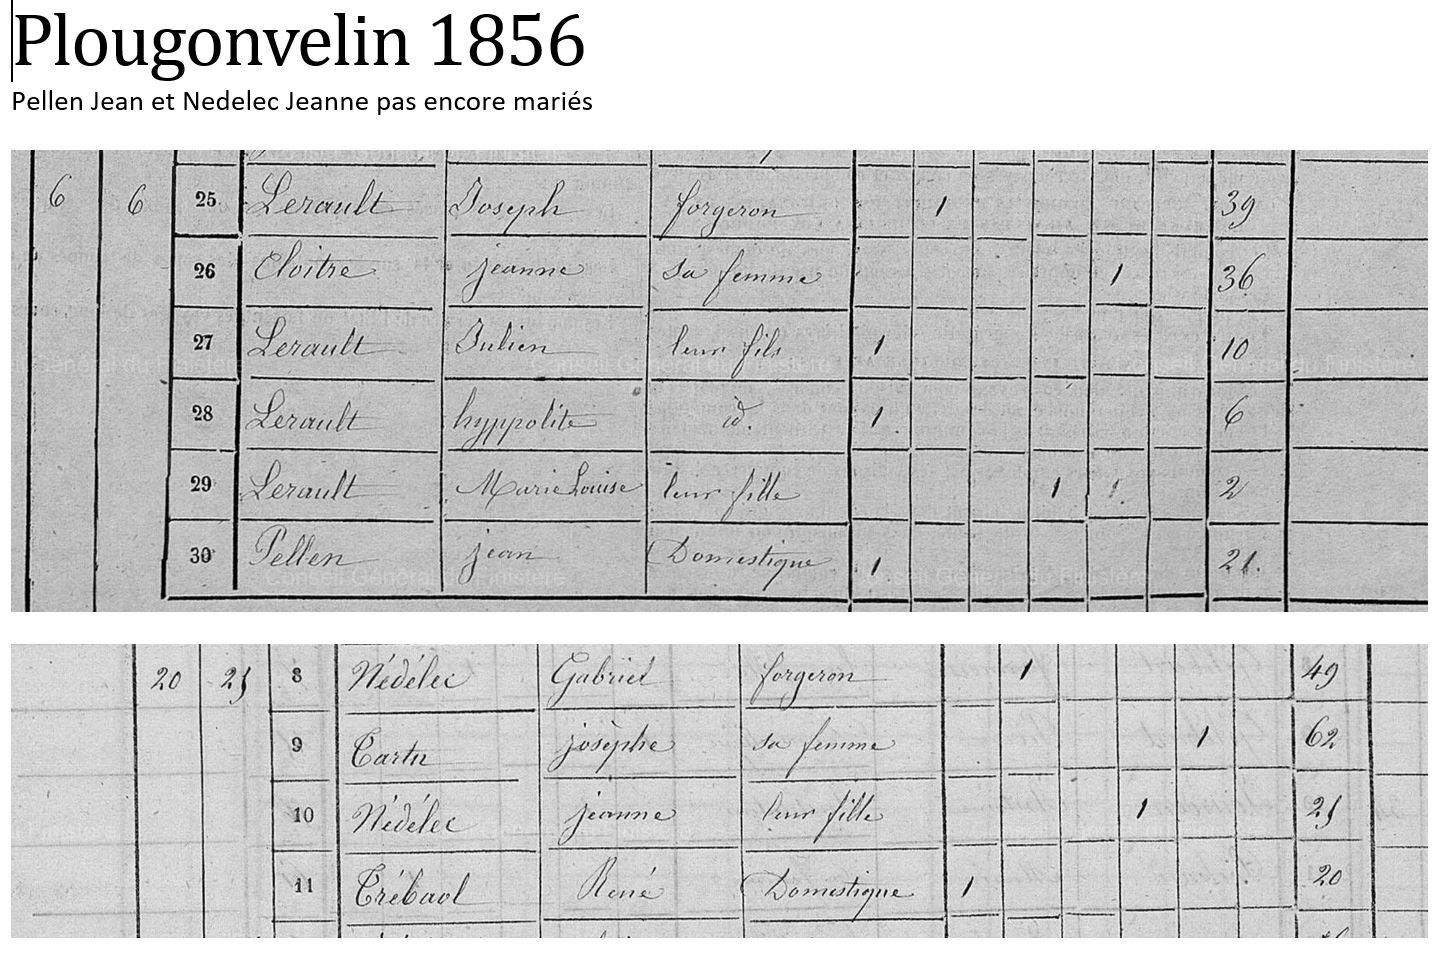 Plougonvelin 1856
Pellen Jean et Nedelec Jeanne pas encore mariés
6 6 25 Lerault Joseph forgeron 1 39
26 Cloitre jeanne sa femme 1 36
27 Lerault Julien leur fils 1 10
28 Lerault hyppolite id. 1 6
29 Lerault Marie Louise leur fille 1 1 2
30 Pellen jean Domestique 1 21.
Conseil Général du Finistère
20 25 8 Nédélec Gabriel forgeron 1 49
9 Tartu josèphe sa femme 1 62
10 Nédélec jeanne leur fille 1 25
11 Trébaol René Domestique 1 20